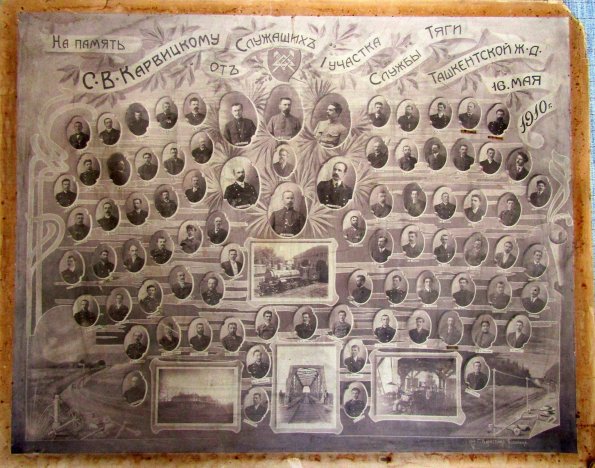 На память С. В. Карвицкому отъ Служащихъ I участка Службы Тяги Ташкентской ж. д.
16. мая
1910 г.